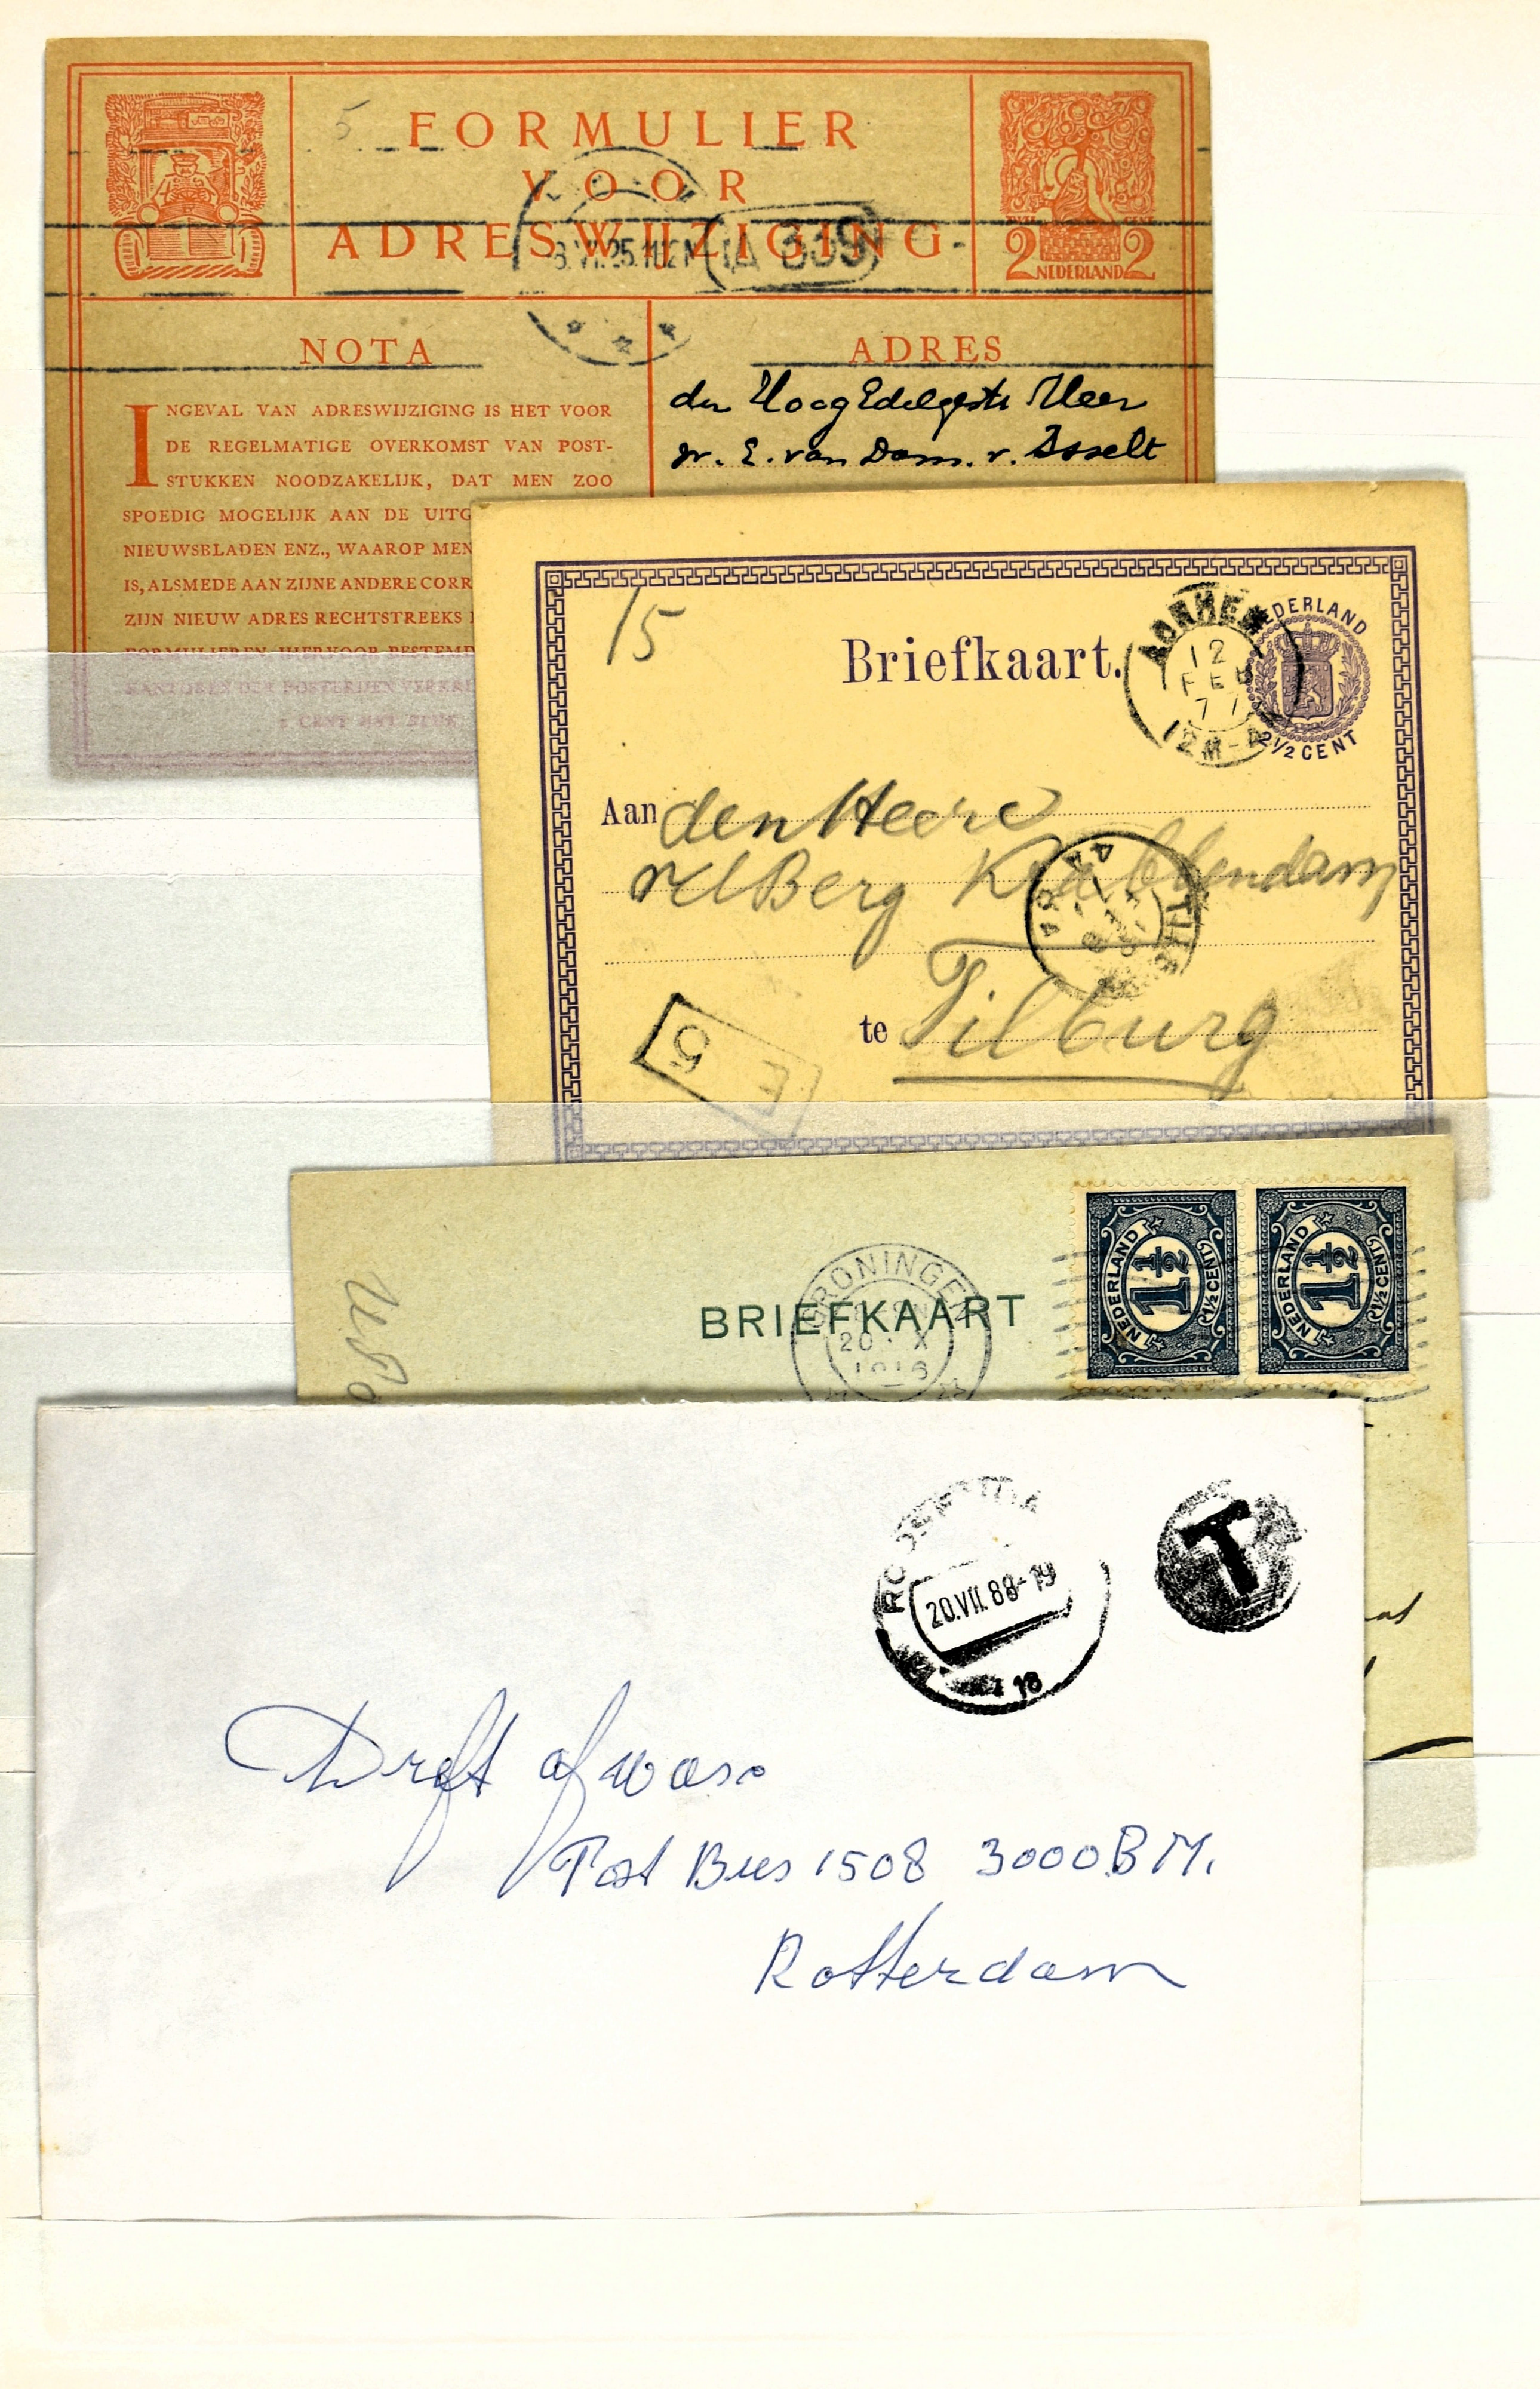 5
FORMULIER
VOOR
ADRESWIJZIGING
TWEE CENT
2 NEDERLAND 2
NOTA
INGEVAL VAN ADRESWIJZIGING IS HET VOOR
DE REGELMATIGE OVERKOMST VAN POST-
STUKKEN NOODZAKELIJK, DAT MEN ZOO
SPOEDIG MOGELIJK AAN DE UITG
NIEUWSBLADEN ENZ., WAAROP MEN
IS, ALSMEDE AAN ZIJNE ANDERE CORR
ZIJN NIEUW ADRES RECHTSTREEKS
FORMULIEREN HIERVOOR BESTEMD
KANTOREN DER POSTERIJEN VERKRI
2 CENT HET STUK
ADRES
den HoogEdelgestr Heer
Mr. E. van Dam. v. Isselt
15
Briefkaart.
ARNHEM
12
FEB
77
12M-
NEDERLAND
2½ CENT
Aan den Heere
vd Berg Krabbendam
te Tilburg
5
BRIEFKAART
GRONINGEN
20 X
1916
NEDERLAND
1½
1½ CENT
NEDERLAND
1½
1½ CENT
20.VII.88-19
18
T
Dreft afwas.
Post Bus 1508 3000 BM.
Rotterdam